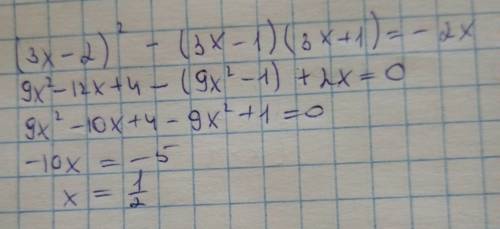 (3x-2)² - (3x-1)(3x+1) = - 2x
9x²-12x+4-(9x²-1)+2x=0
9x²-10x+4-9x²+1=0
-10x = -5
x = 1/2